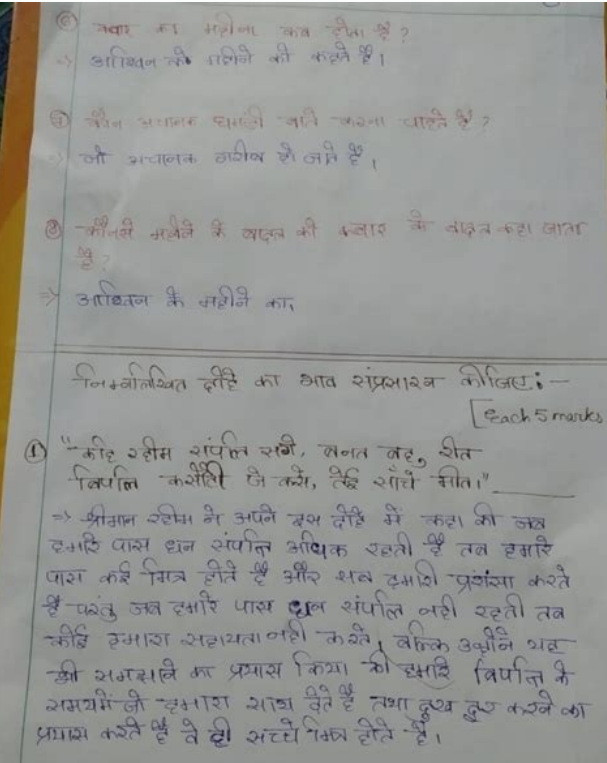 ⑥ क्वार का महीना कब होता है?
=> आश्विन के महीने को कहते है।
⑦ कौन अचानक घमंडी बाते करना चाहते है?
=> जो अचानक गरीब हो जाते है।
⑧ कौनसे महीने के बादल को क्वार के बादल कहा जाता
है?
=> आश्विन के महीने का,
निम्नलिखित दोहे का भाव संप्रसारन कीजिए:-
[Each 5 marks
① "कहि रहीम संपत्ति सगे, बनत बहु रीत
विपत्ति कसौटी जे कसे, तेई साँचे मीत।"
=> श्रीमान रहीम ने अपने इस दोहे में कहा की जब
हमारे पास धन संपत्ति अधिक रहती है तब हमारे
पास कई मित्र होते है और सब हमारी प्रशंसा करते
है परंतु जब हमारे पास धन संपत्ति नही रहती तब
कोई हमारा सहायता नही करते, बल्कि उन्होंने यह
भी समझाने का प्रयास किया की हमारे विपत्ति के
समय में जो हमारा साथ देते है तथा दुख दुर करने का
प्रयास करते है वे ही सच्चे मित्र होते है।